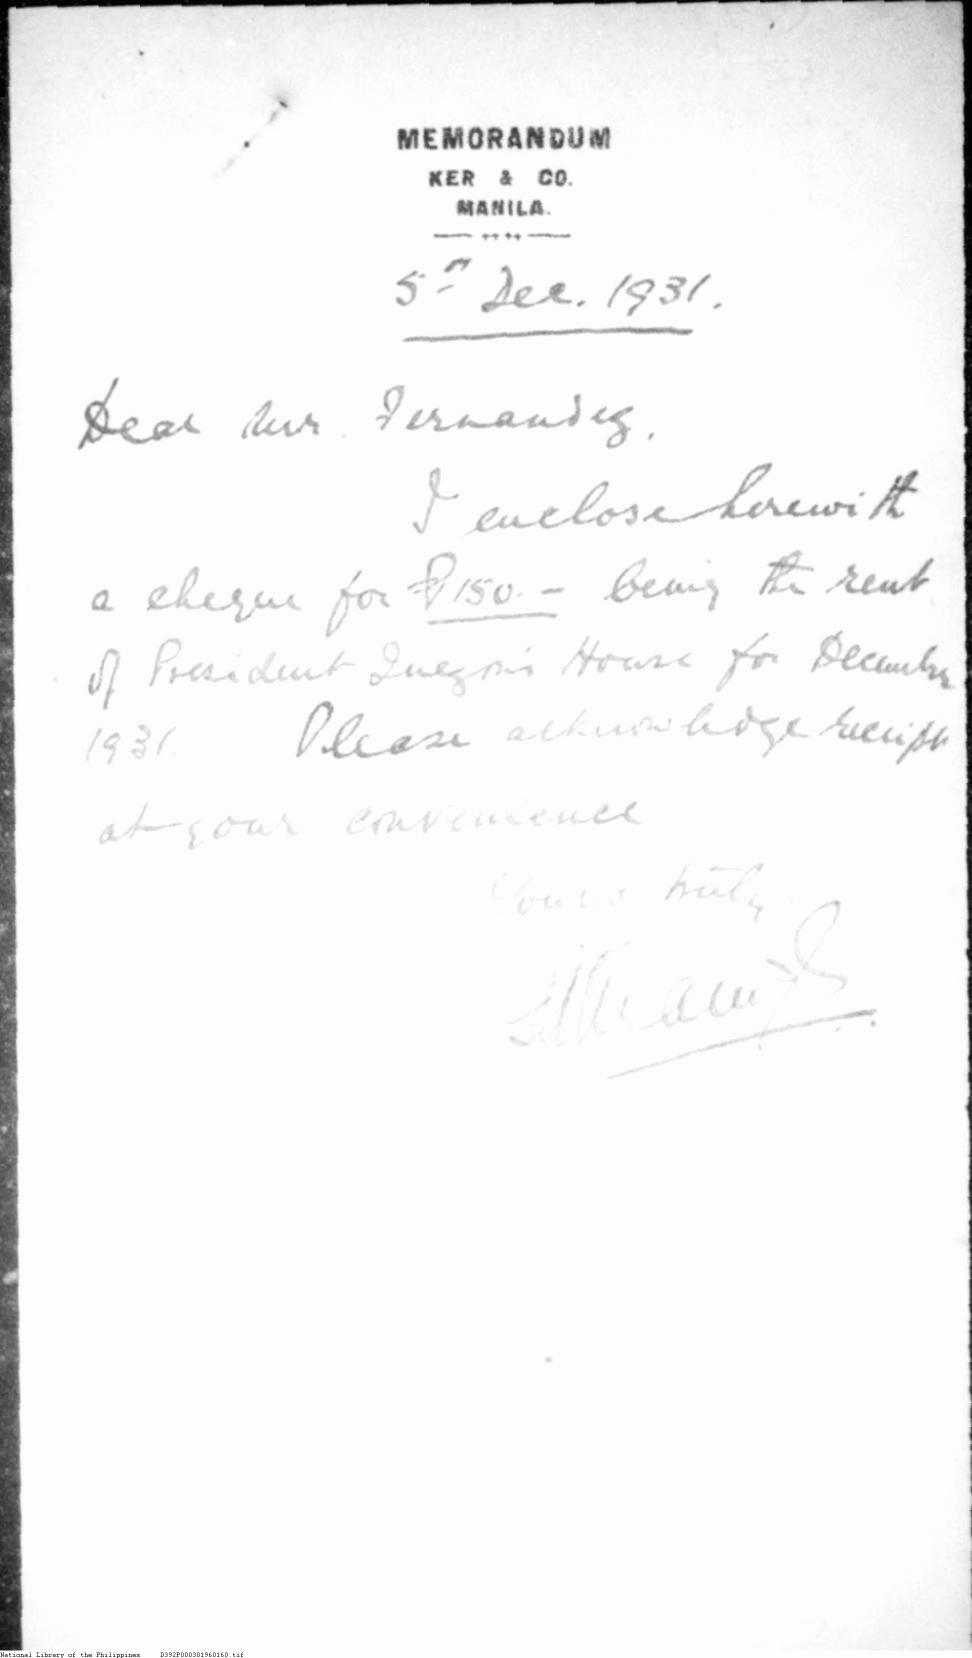 MEMORANDUM
KER & CO.
MANILA.
5th Dec. 1931.
Dear Mr. Fernandez,
I enclose herewith
a cheque for ₱150.- being the rent
of President Quezon's House for December
1931. Please acknowledge receipt
at your convenience
Yours truly
National Library of the Philippines D392P000301960160.tif